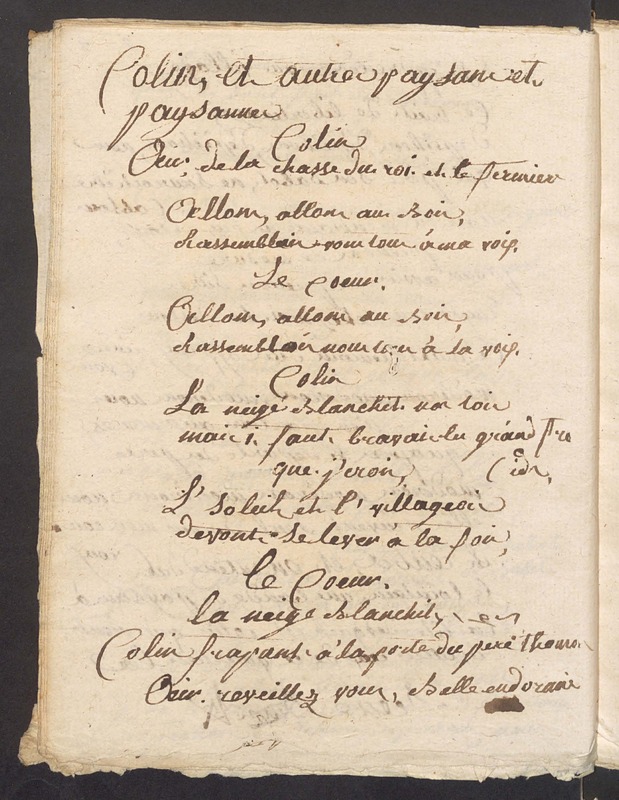 Colin, et autre paysans et
paysanne
Colin
Air, de la chasse du roi et le fermier
Allons, allons au bois,
Rassemblais vous tous à ma voix.
Le Coeur.
Allons, allons au bois,
Rassemblons nous tous à sa voix.
Colin
La neige blanchit nos tois
mais i faut bravais les grands fro
que j'crois, (ids,
L'Soleil et l'villageois
devont se lever à la fois,
Le Coeur.
la neige blanchit,
Colin frapant à la porte du pere Thomas
Air. reveillez vous, belle endormie